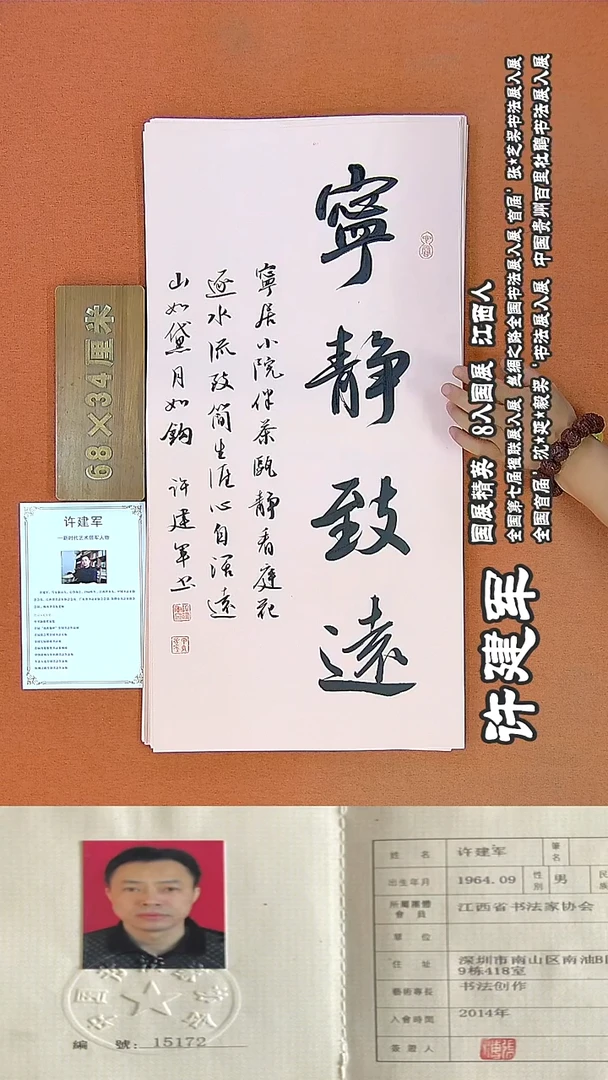 寧靜致遠
寧居小院伴茶甌靜看庭花
逐水流致簡生涯心自濶遠
山如黛月如鈎 许建军书
68×34厘米
许建军
许建军
国展精英 8入国展 江西人
全国第七届楹联展入展 丝绸之路全国书法展入展 首届'张*芝奖书法展入展
全国首届'沈*延*毅奖'书法展入展 中国贵州百里杜鹃书法展入展
編 號: 15172
姓 名 许建军 筆名
出生年月 1964.09 性別 男 民族
所屬團體會員 江西省书法家协会
單 位
住 址 深圳市南山区南油B区
9栋418室
藝術專長 书法创作
入會時間 2014年
簽證人